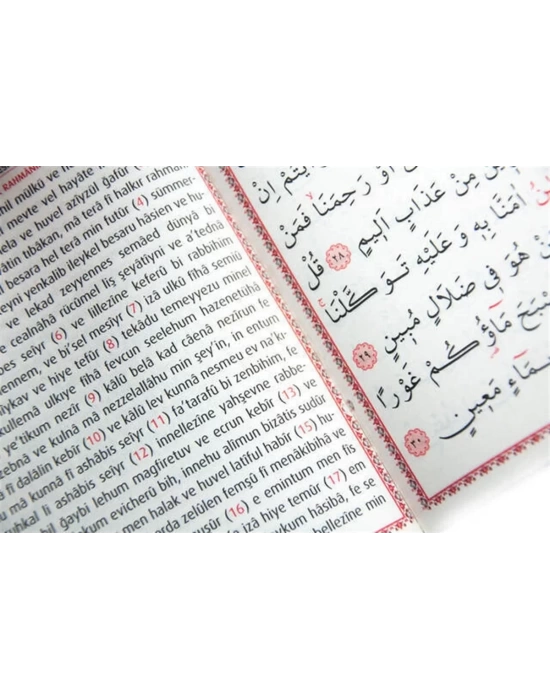 RAHMANİ
mülkü ve
meyte vel hayâte
ve huvel azîyzül gafûr
tıbâkan, mâ terâ fî halkır rahmân
besara hel terâ min futûr (4) sümmer-
yenkalib ileykel besaru hâsien ve hu-
ve lekad zeyyennes semâed dünyâ bi
cealnâhâ rücûmel liş şeyâtıyni ve a'tednâ
seîyr (6) ve lillezîne keferû bi rabbihim
ve bi'sel mesîyr (7) izâ ulkû fîhâ semiû
ve hiye tefûr (8) tekâdu temeyyezu minel
kullemâ ulkıye fîhâ fevcun seelehum hazenetühâ
e'tikum nezîr (9) kâlû belâ kad câenâ nezîrun fe
ve kulnâ mâ nezzelallâhu min şey'in, in entum
fî dalâlin kebîr (10) ve kâlû lev kunnâ nesmeu ev na'k-
mâ kunnâ fî ashâbis seîyr (11) fa'tarafû bi zenbihim, fe
li ashâbis seîyr (12) innellezîne yahşevne rabbe-
bil ğaybi lehum magfiretuv ve ecrun kebîr (13) ve
evicherû bih, innehu alîmun bizâtis sudûr
men halak ve huvel latîful habîr (15) hu-
zelûlen femşû fî menâkibihâ ve
(16) e emintum men fis
izâ hiye temûr (17) em
hâsıbâ, fe se
bellezîne min
اِنْ
اَوْ رَحِمَنَا فَمَنْ
مِنْ عَذَابٍ اَلِيمٍ ﴿٢٨﴾ قُلْ
اٰمَنَّا بِهِ وَعَلَيْهِ تَوَكَّلْنَا
هُوَ فِي ضَلَالٍ مُبِينٍ ﴿٢٩﴾
مَاؤُكُمْ غَوْرًا
مَعِينٍ ﴿٣٠﴾